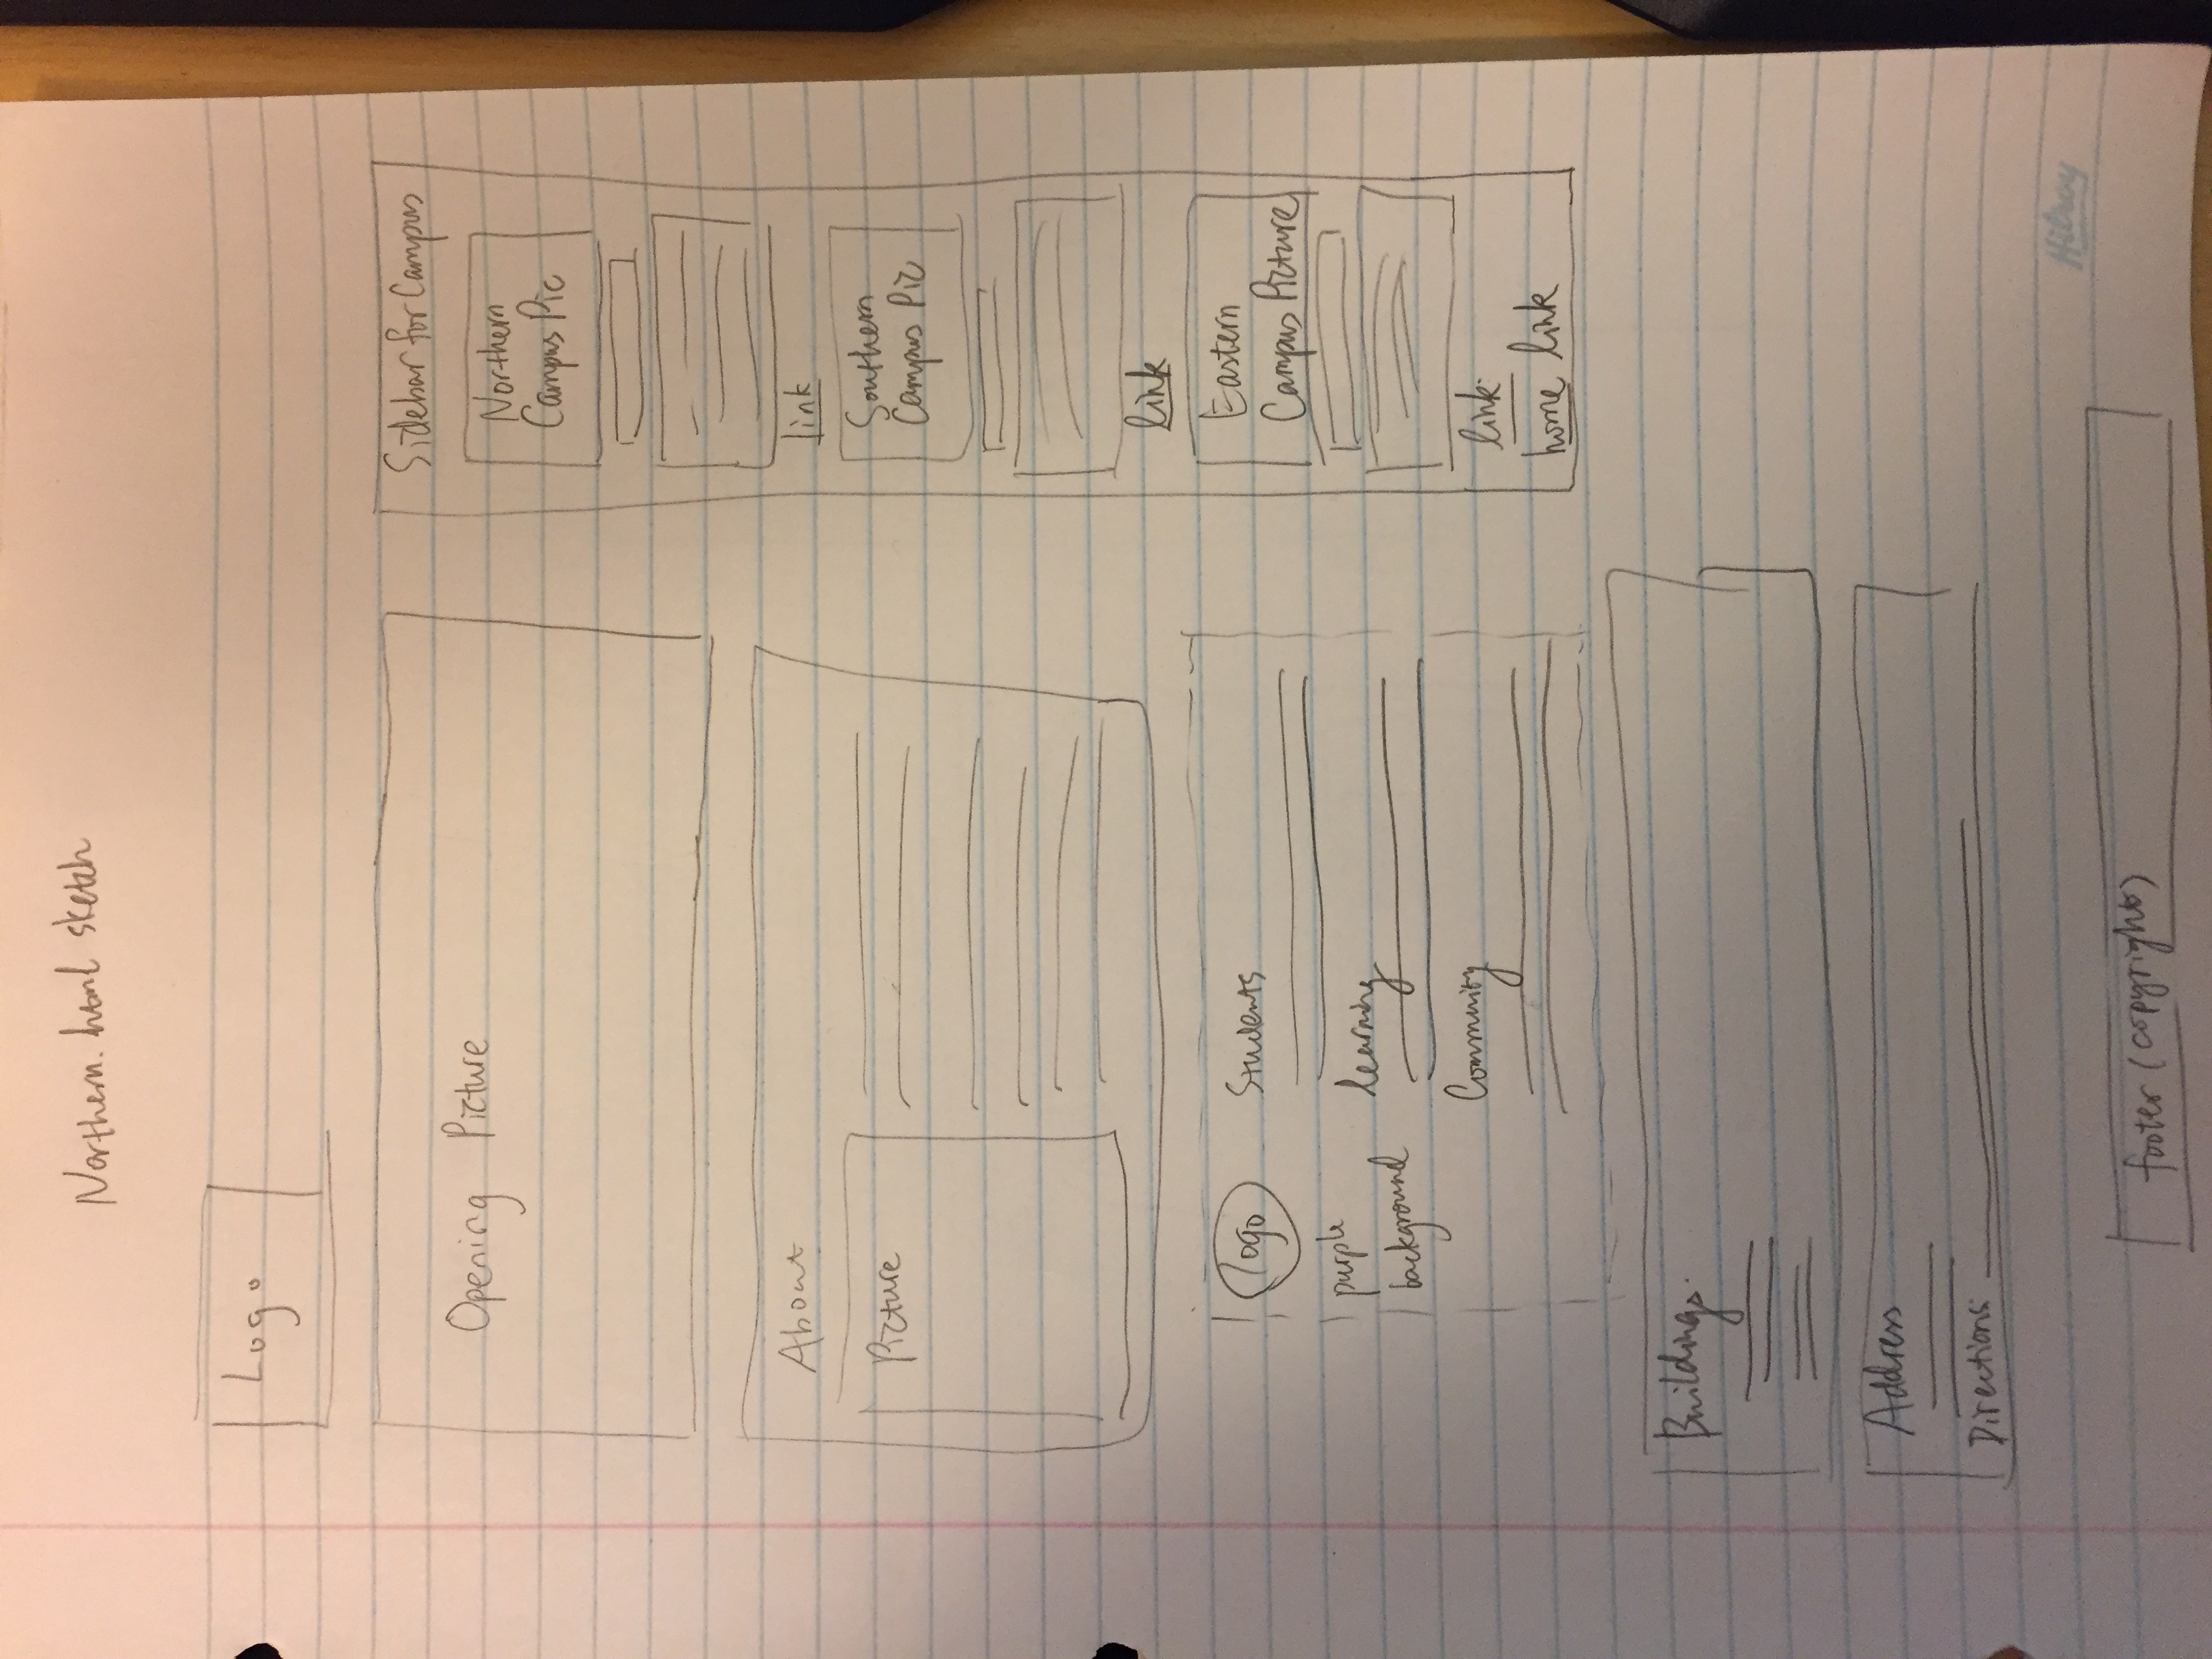 Northern.html sketch
Logo
Opening Picture
About
Picture
logo
purple
background
Students
learning
Community
Buildings
Address
Directions
Sidebar for Campus
Northern
Campus Pic
link
Southern
Campus Pic
link
Eastern
Campus Picture
link
home link
footer (copyrights)
Hilroy